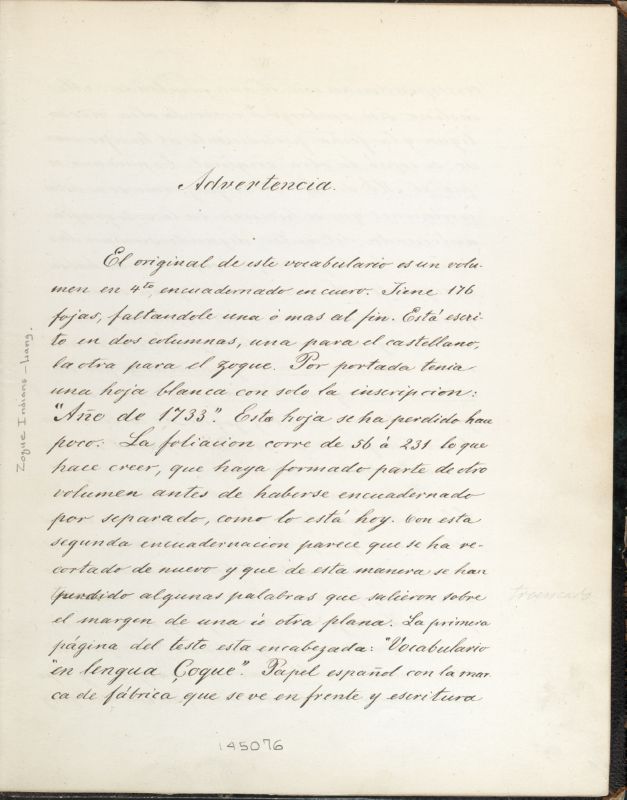 Advertencia.
El original de este vocabulario es un volu-
men en 4to, encuadernado en cuero. Tiene 176
fojas, faltandole una ò mas al fin. Está escri-
to en dos columnas, una para el castellano,
la otra para el zoque. Por portada tenia
una hoja blanca con solo la inscripcion:
"Año de 1733". Esta hoja se ha perdido hace
poco. La foliacion corre de 56 à 231 lo que
hace creer, que haya formado parte de otro
volumen antes de haberse encuadernado
por separado, como lo está hoy. Con esta
segunda encuadernacion parece que se ha re-
cortado de nuevo y que de esta manera se han
perdido algunas palabras que salieron sobre
el margen de una ù otra plana. La primera
página del testo esta encabezada: "Vocabulario
"en lengua Çoque". Papel español con la mar
ca de fábrica que se ve en frente y escritura
Zoque Indians - Lang.
145076